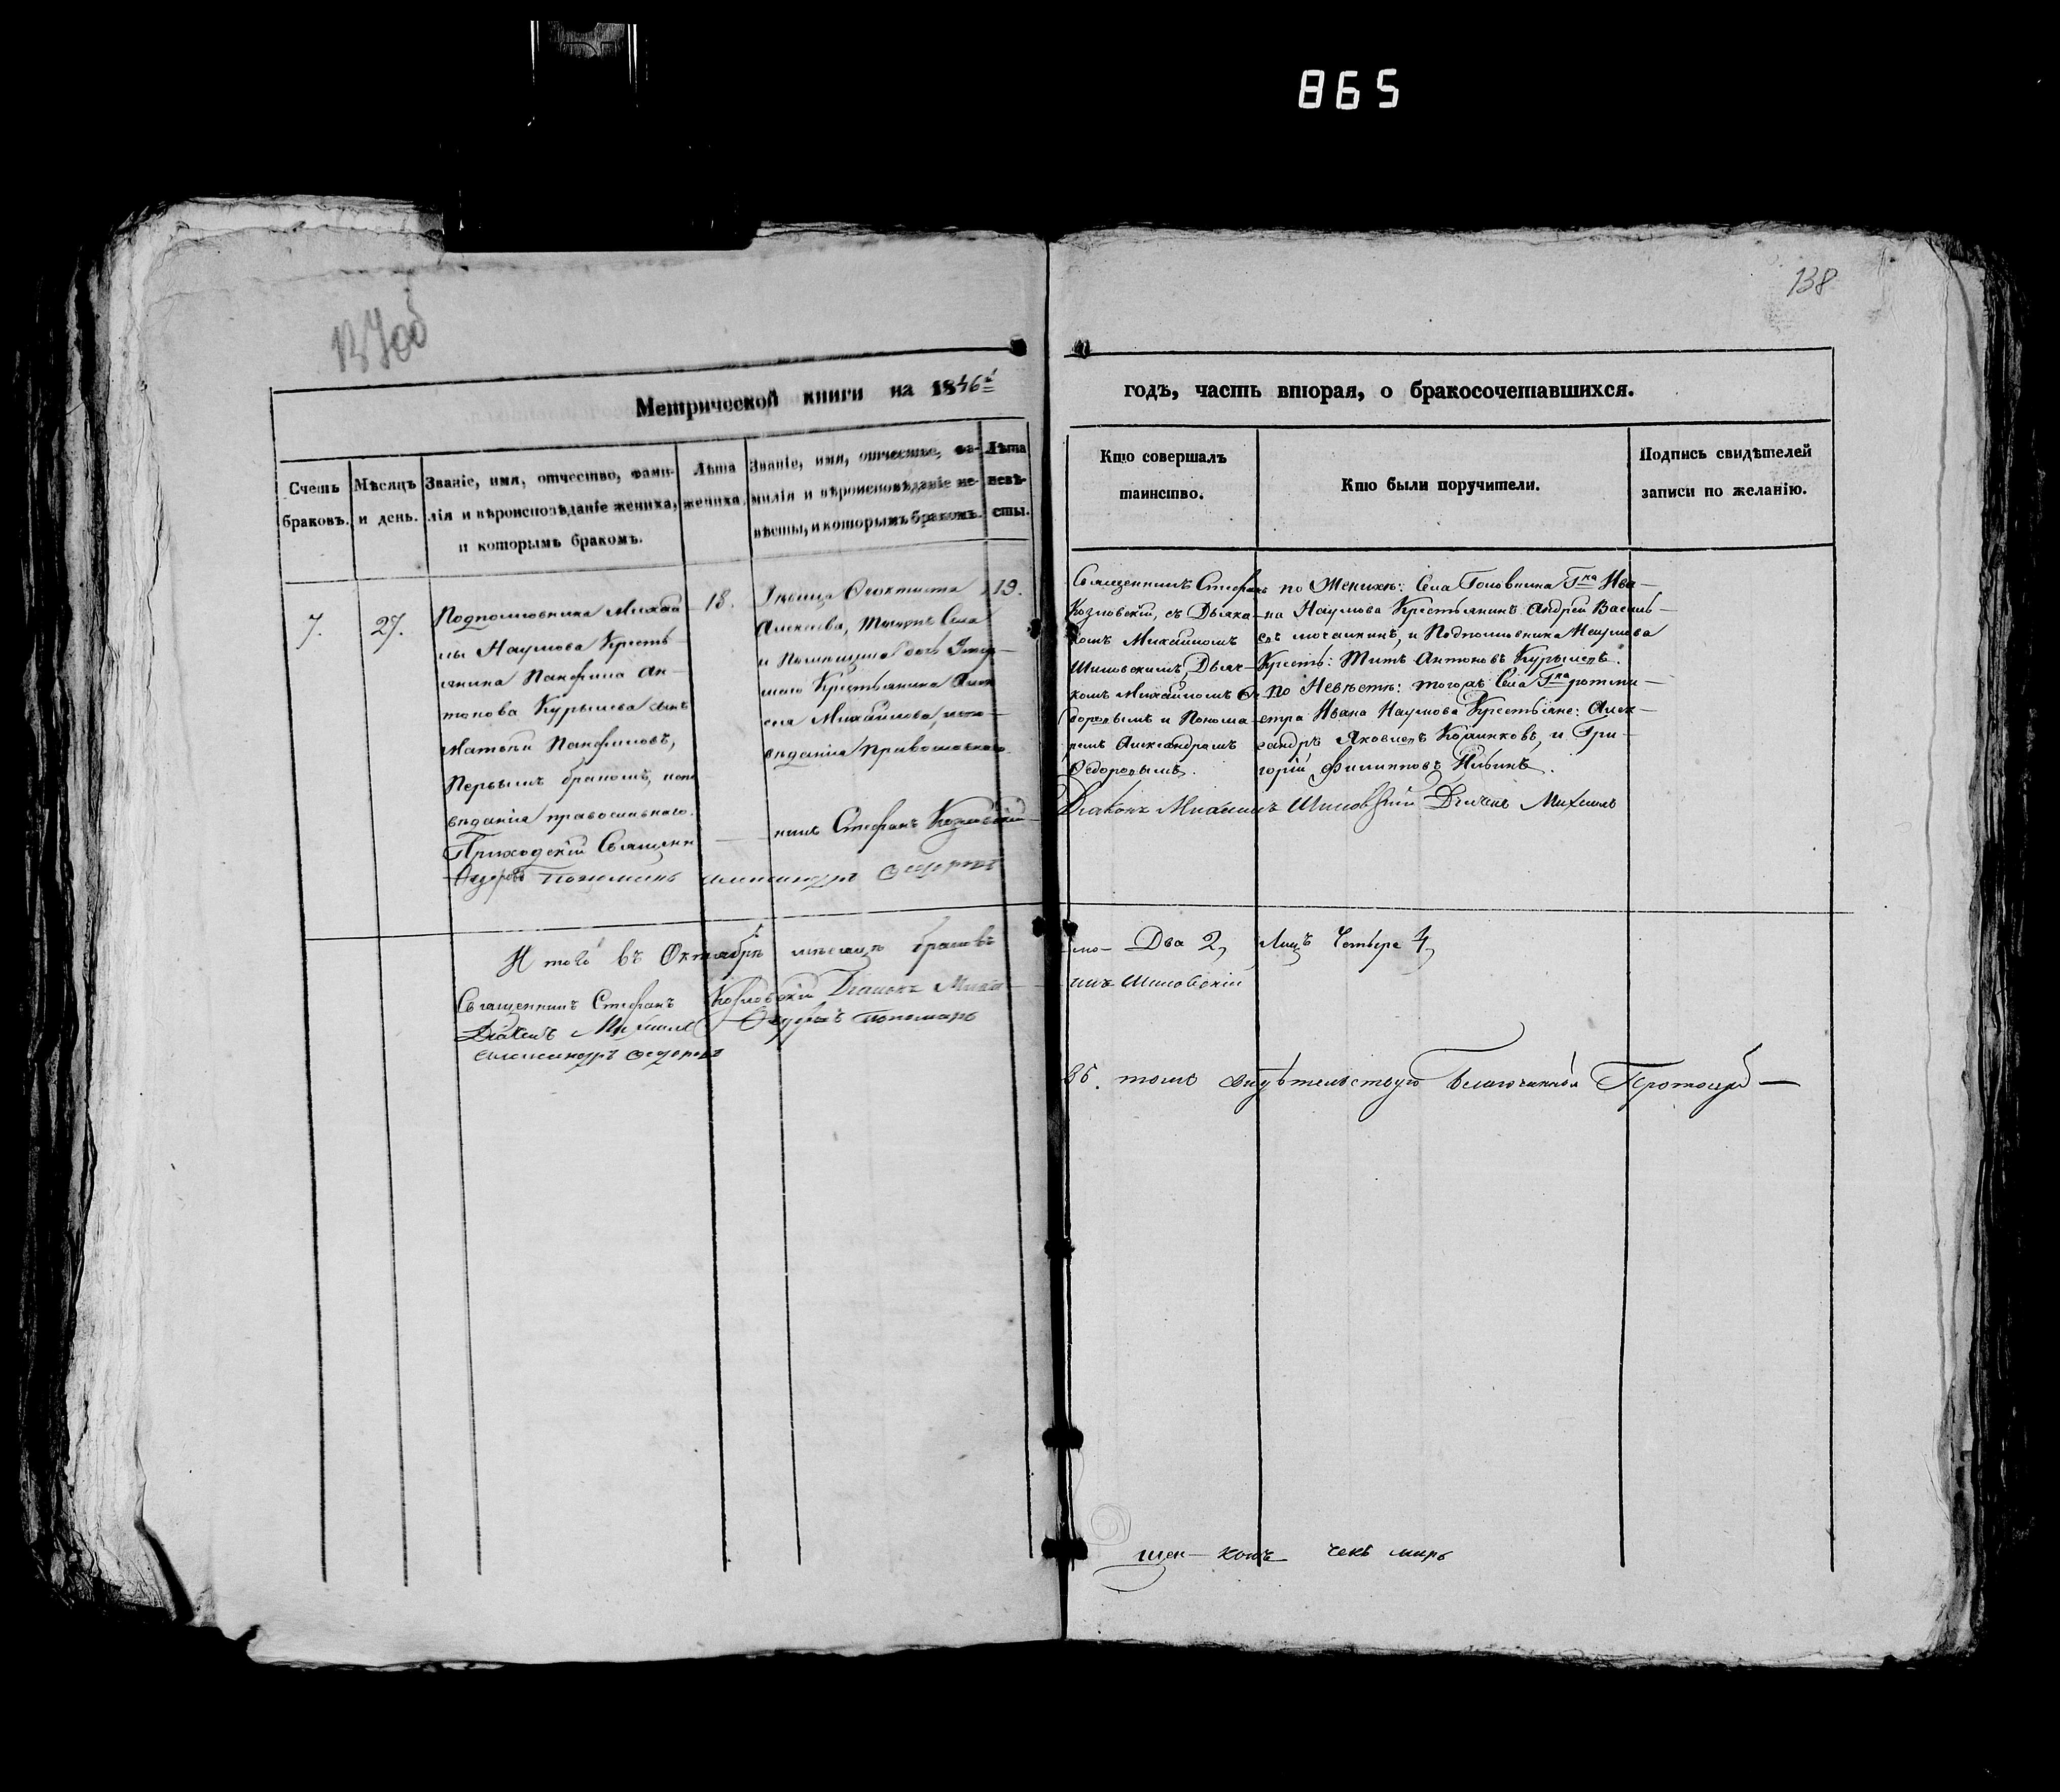 865
137об
138
Метрической книги на 1846й
годъ, часть вторая, о бракосочетавшихся.
Счетъ браковъ.
Мѣсяцъ и день.
Званіе, имя, отчество, фами-
лія и вѣроисповѣданіе жениха,
и которымъ бракомъ.
Лѣта
жениха.
Званіе, имя, отчество, фа-
милія и вѣроисповѣданіе не-
вѣсты, и которымъ бракомъ.
Лѣта
невѣ-
сты.
Кто совершалъ
таинство.
Кто были поручители.
Подпись свидѣтелей
записи по желанію.
7.
27.
Подполковника Михаи
лы Наумова Кресть
янина Панфила Ан-
тонова Курылева сынъ
Матвѣй Панфиловъ,
Первымъ бракомъ, испо
вѣданія православнаго.
18.
Дѣвица Феоктиста
Алексеева, тогожъ Села
и Помещика дочь Умер-
шаго Крестьянина Алек
сея Михайлова, испо-
вѣданія Православнаго
19.
Священникъ Стефанъ
Козловскій, съ Дьяко-
номъ Михайломъ
Шиловскимъ, Дьяч-
комъ Михайломъ Фе-
доровымъ и Понома-
ремъ Александромъ
Федоровымъ.
по Женихѣ: Села Головнина Гна Ива-
на Наумова Крестьянинъ Андрей Василь-
евъ, и Подполковника Наумова
Крестья: Титъ Антоновъ Курылевъ.
по Невѣстѣ: того жъ Села Гна ротми-
стра Ивана Наумова Крестьяне: Алек-
сандръ Яковлевъ, и Гри-
горій Филипповъ Ильинъ.
Приходскій Священ
никъ Стефанъ Козловскій
Діаконъ Михаилъ Шиловскій Дьячекъ Михаилъ
Федоровъ Пономарь Александръ Федоровъ
Итого въ Октябрѣ месяцѣ браковъ
Два 2, Лицъ Четыре 4,
Священникъ Стефанъ Козловскій Діаконъ Миха
илъ Шиловскій
Дьячекъ Михаилъ Федоровъ Пономарь
Александръ Федоровъ
Въ томъ свидѣтельствую Благочинный
щен- конъ чекъ марь